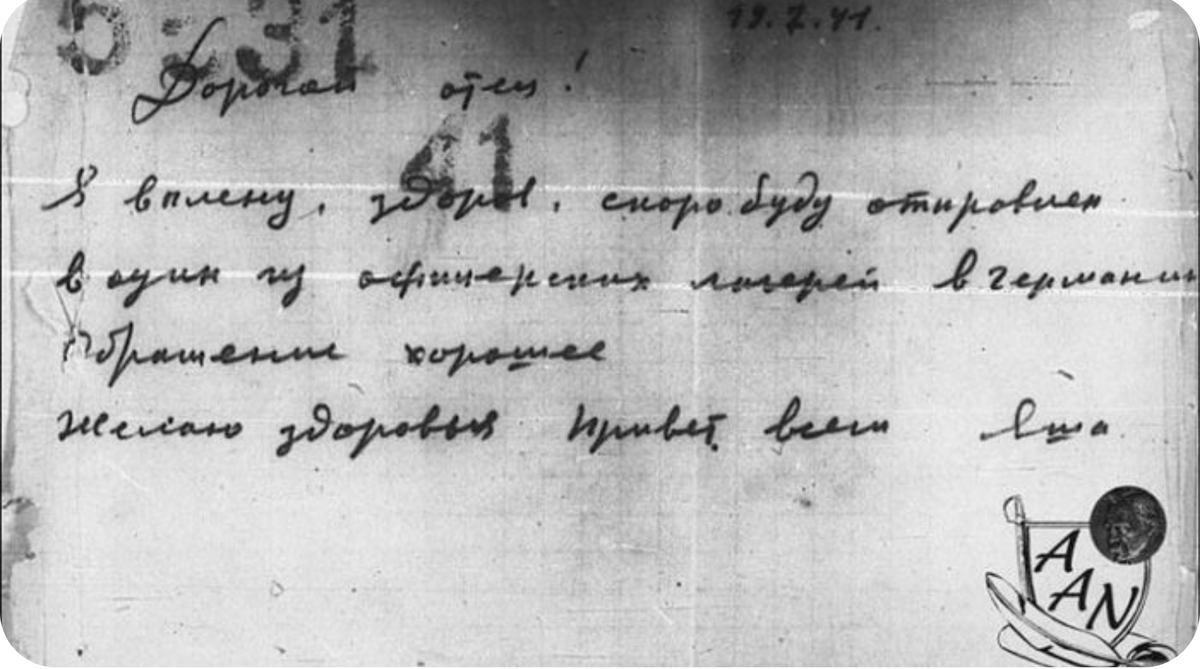 5 = 31
19.7.41.
Дорогой отец!
41
Я в плену, здоров, скоро буду отправлен
в один из офицерских лагерей в Германии
Обращение хорошее
желаю здоровья Привет всем Яша
AAN